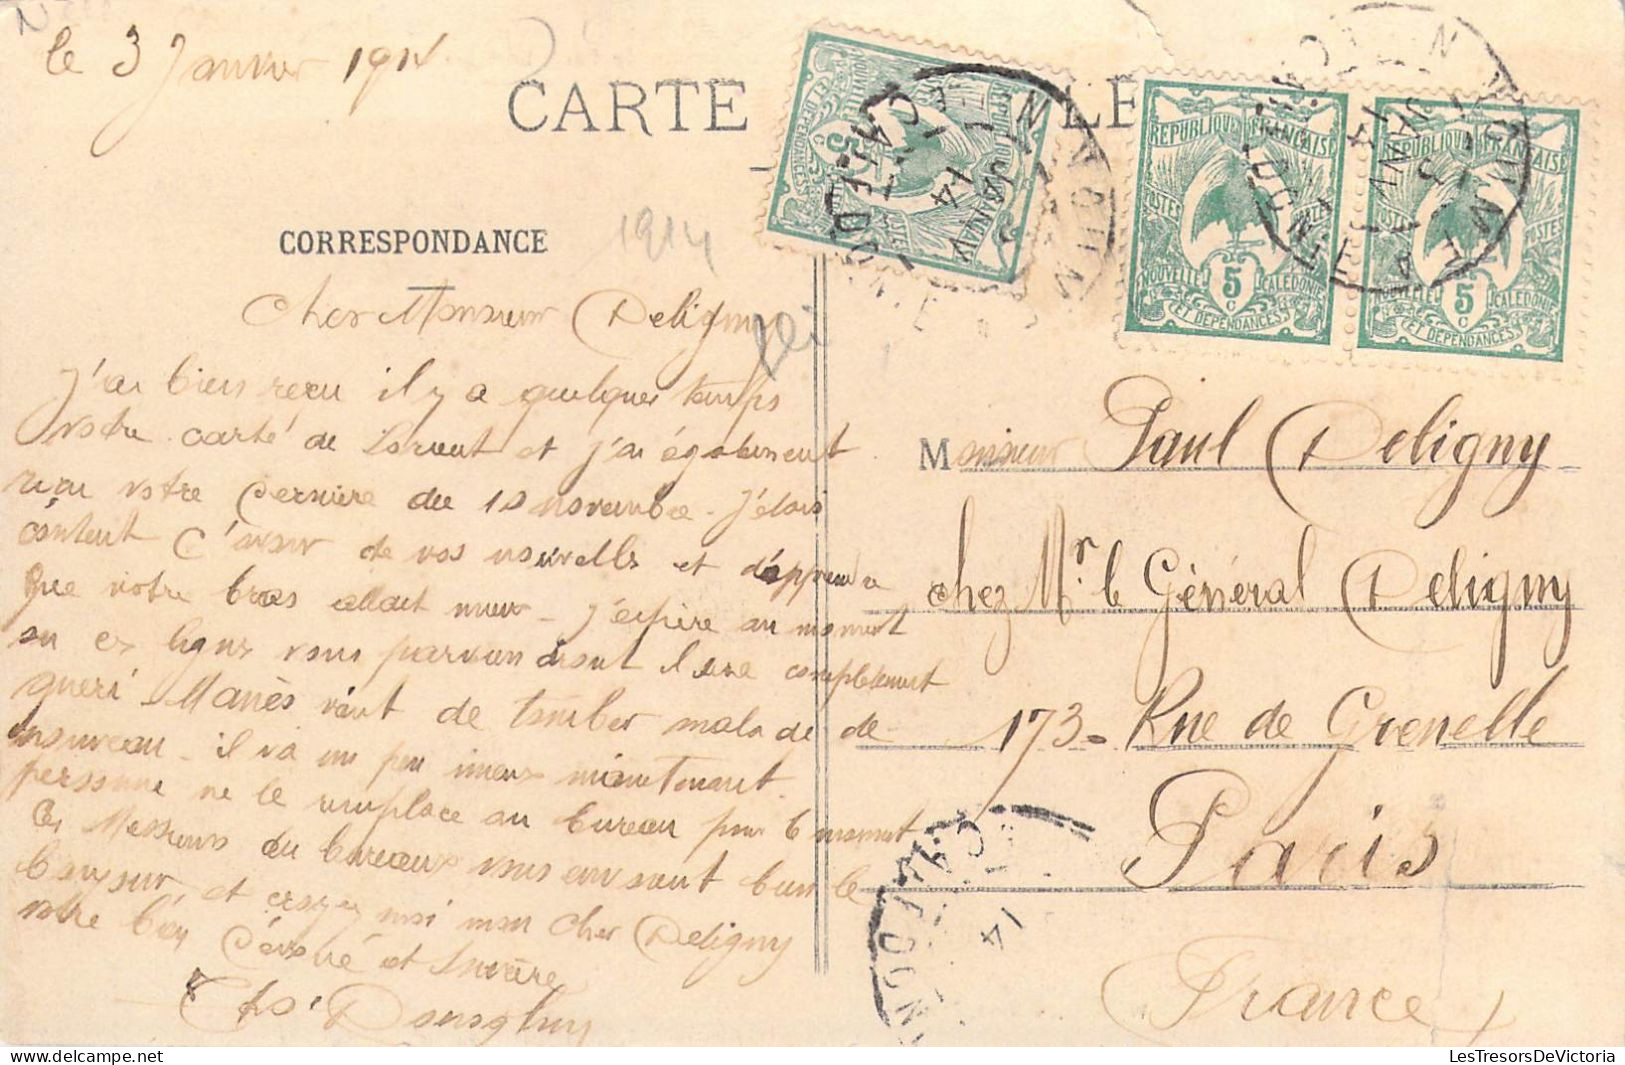 le 3 Janvier 1914
CARTE
LE
CORRESPONDANCE
1914
Cher Monsieur Deligny
J'ai bien reçu il y a quelques temps
votre carte de Lorient et j'ai également
reçu votre dernière du 10 novembre. J'étais
content d'avoir de vos nouvelles et d'apprendre
que votre bras allait mieux - J'espère au moment
ou ces lignes vous parviendront il sera complètement
guéri. Manès vient de tomber malade de
nouveau - il va un peu mieux maintenant.
personne ne le remplace au bureau pour le moment
Ces Messieurs du bureau vous envoient bien le
bonjour, et croyez moi mon cher Deligny
votre bien dévoué et sincère
REPUBLIQUE FRANCAISE
POSTES
5 c
NOUVELLE CALEDONIE
ET DEPENDANCES
REPUBLIQUE FRANCAISE
POSTES
5 c
NOUVELLE CALEDONIE
ET DEPENDANCES
Monsieur Paul Deligny
chez Mr. le Général Deligny
173 - Rue de Grenelle
Paris
France
LesTresorsDeVictoria